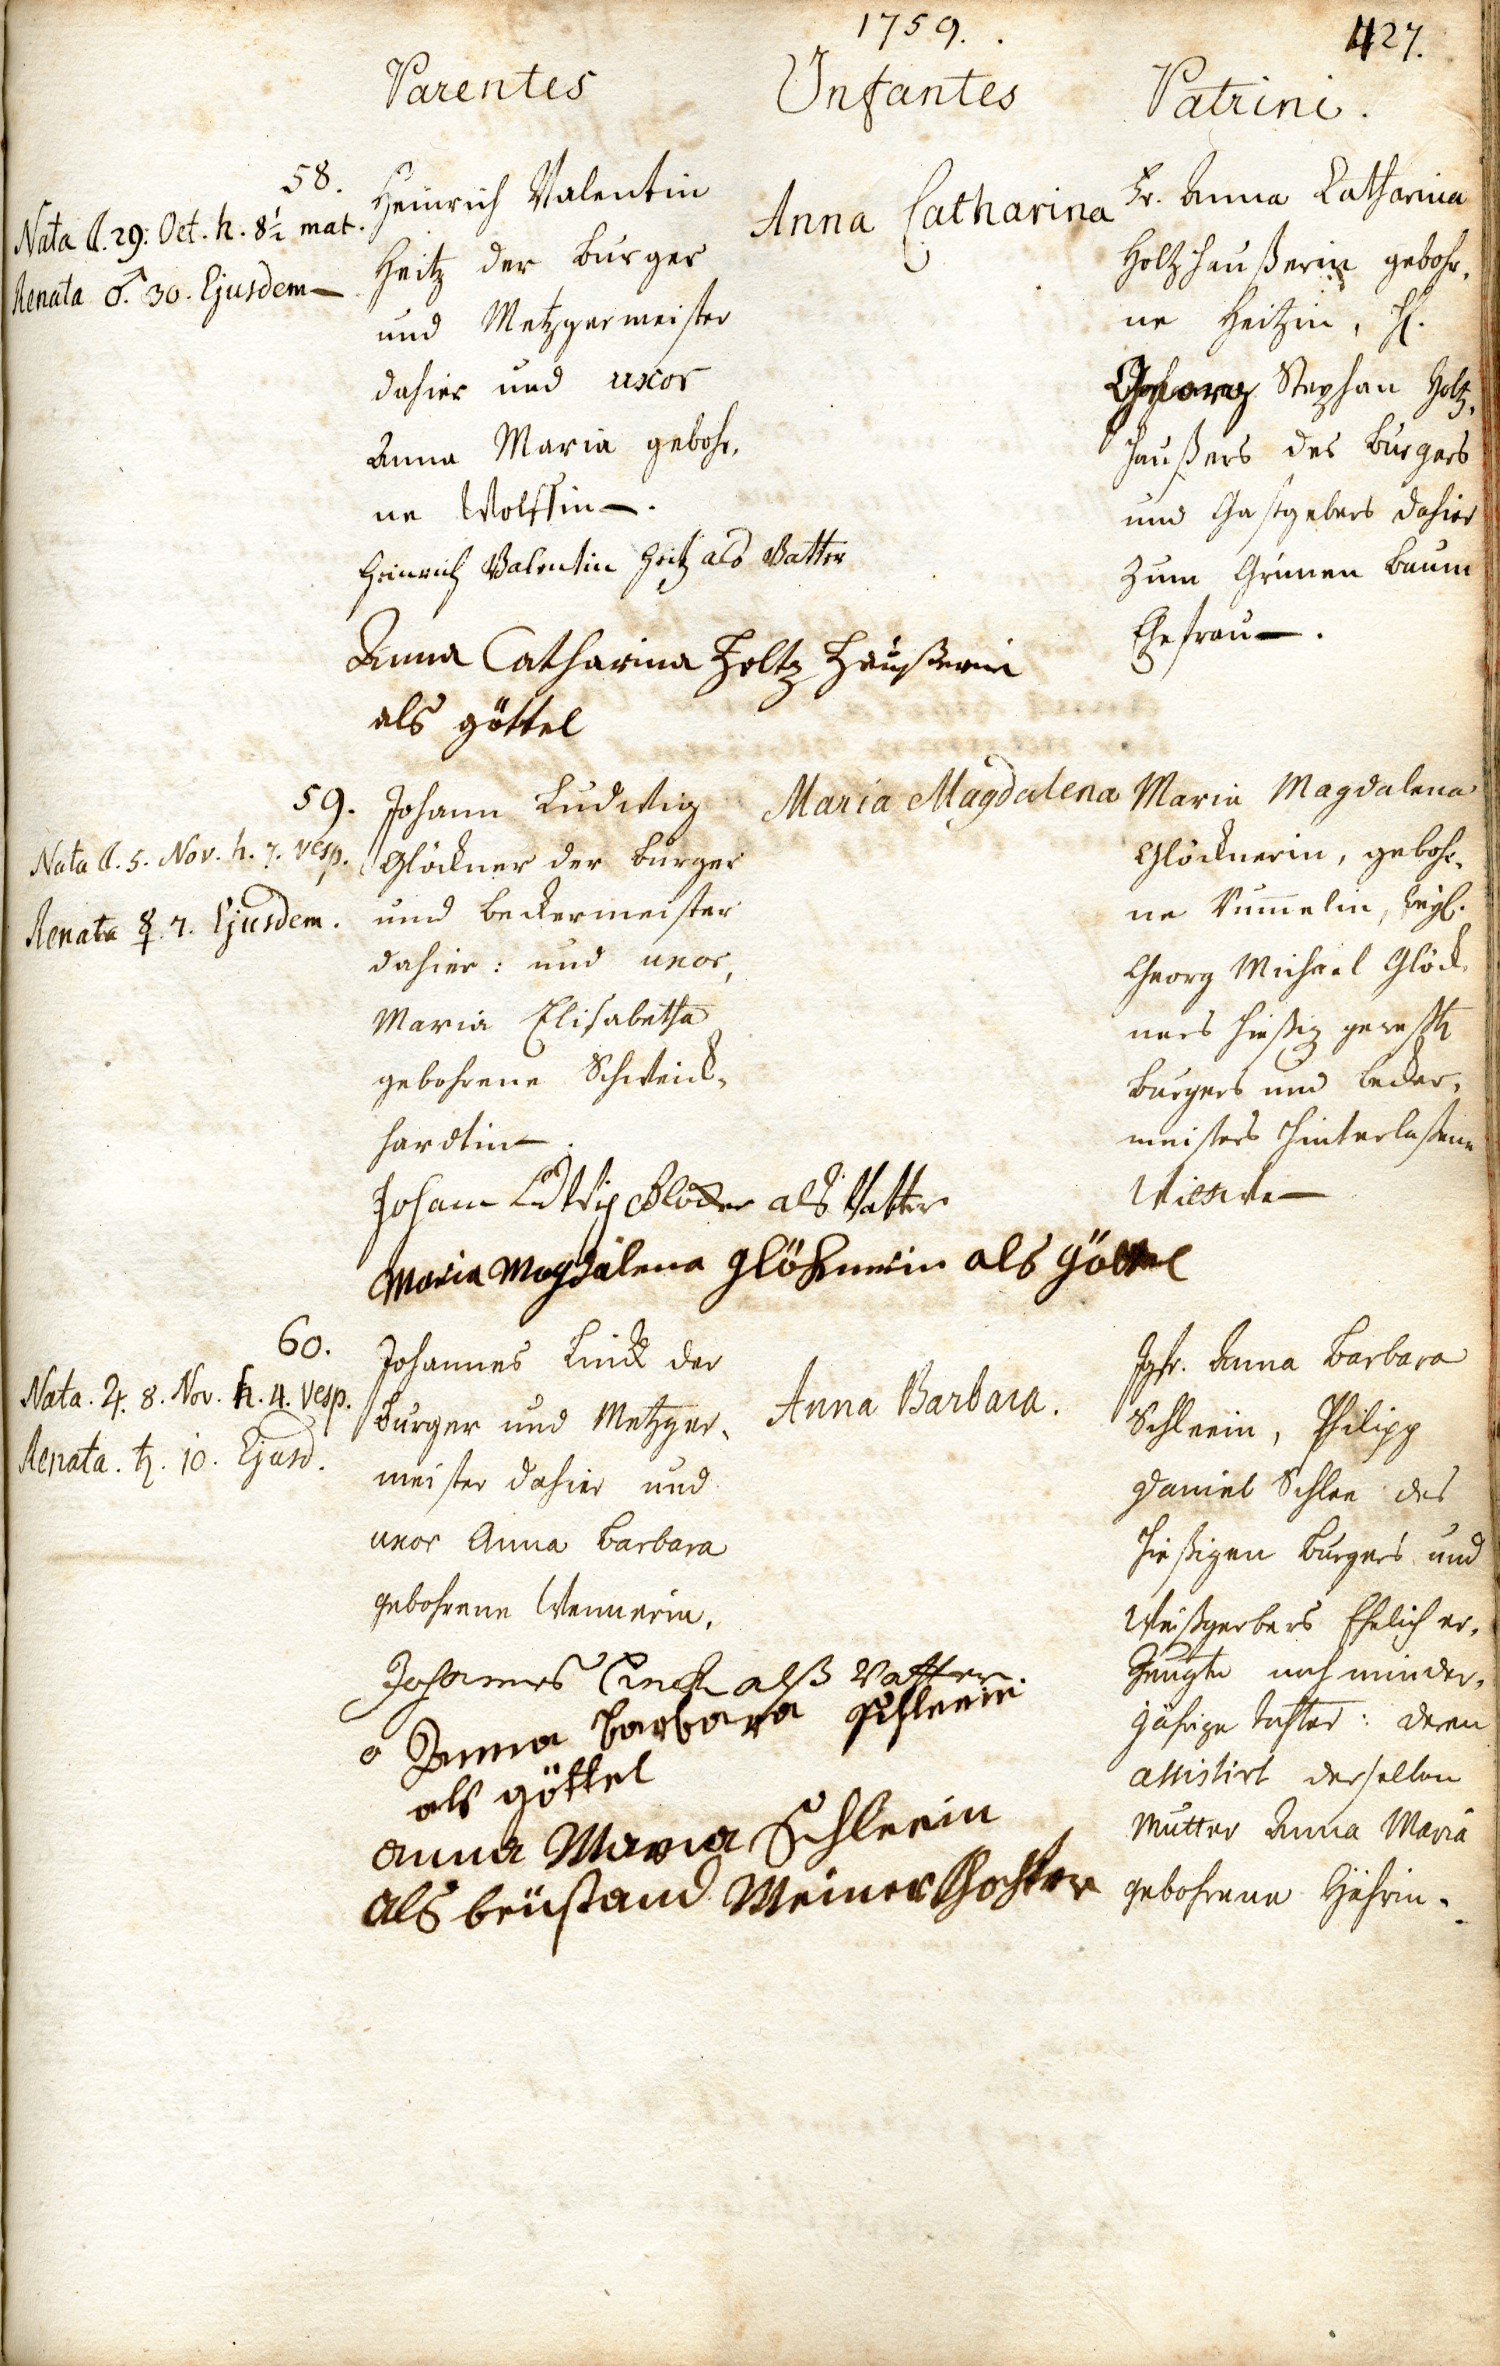 1759.
427.
Parentes
Infantes
Patrini.
58.
Nata ☾. 29. Oct. h. 8½ mat.
Renata ♂. 30. Ejusdem —
Heinrich Valentin
Heitz der Burger
und Metzgermeister
dahier und uxor
Anna Maria gebohr,
ne Wolffin —.
Heinrich Valentin Heitz als Vatter
Anna Catharina Holtz Häußerin
als göttel
Anna Catharina
Fr. Anna Catharina
Holtzhaußerin gebohr,
ne Heitzin, H.
Georg Stephan Holtz,
haußers des Burgers
und Gastgebers dahier
zum Grünen Baum
Ehefrau —.
59.
Nata ☾. 5. Nov. h. 7. vesp.
Renata ☿. 7. Ejusdem.
Johann Ludwig
Glöckner der Burger
und Beckermeister
dahier: und uxor,
Maria Elisabetha
gebohrene Schweick,
hardtin —.
Johann Ludwig als Vatter
Maria Magdalena glöcknerin als Göttel
Maria Magdalena
Maria Magdalena
Glöcknerin, gebohr,
ne
Georg Michael Glöck,
ners hießig
Burgers und Becker,
meisters hinterlaßene
Wittwe —
60.
Nata. ♃. 8. Nov. h. 4. vesp.
Renata. ♄. 10. Ejusd.
Johannes Linck der
Burger und Metzger,
meister dahier und
uxor Anna Barbara
gebohrene Wennerin.
Johannes Linck alß Vatter.
Anna Barbara Schleein
als göttel
Anna Maria Schleein
als beÿstand Meiner Thochter
Anna Barbara.
Jgfr. Anna Barbara
Schleein, Philipp
Daniel Schlee des
hießigen Burgers und
Weißgerbers Ehelich er,
zeugte noch minder,
jährige Tochter: deren
assistirt derselben
Mutter Anna Maria
gebohrene